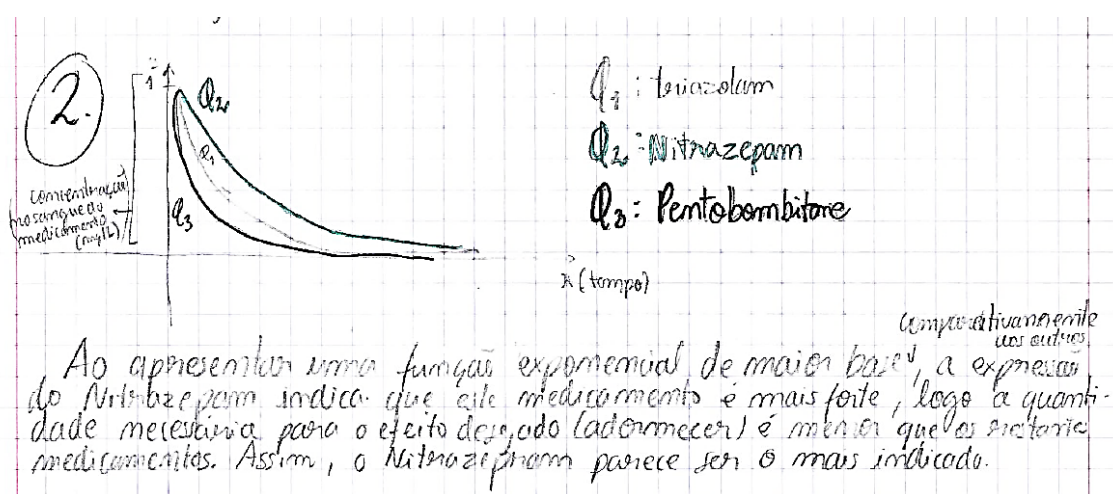 2.
1
Q2
Q1
Q3
concentração
no sangue do
medicamento
(mg/L)
x (tempo)
Q1: triazolam
Q2: Nitrazepam
Q3: Pentobombitone
comparativamente
aos outros
Ao apresentar uma função exponencial de maior base, a expressão
do Nitrazepam indica que este medicamento é mais forte, logo a quanti-
dade necessária para o efeito desejado (adormecer) é menor que os restantes
medicamentos. Assim, o Nitrazepam parece ser o mais indicado.